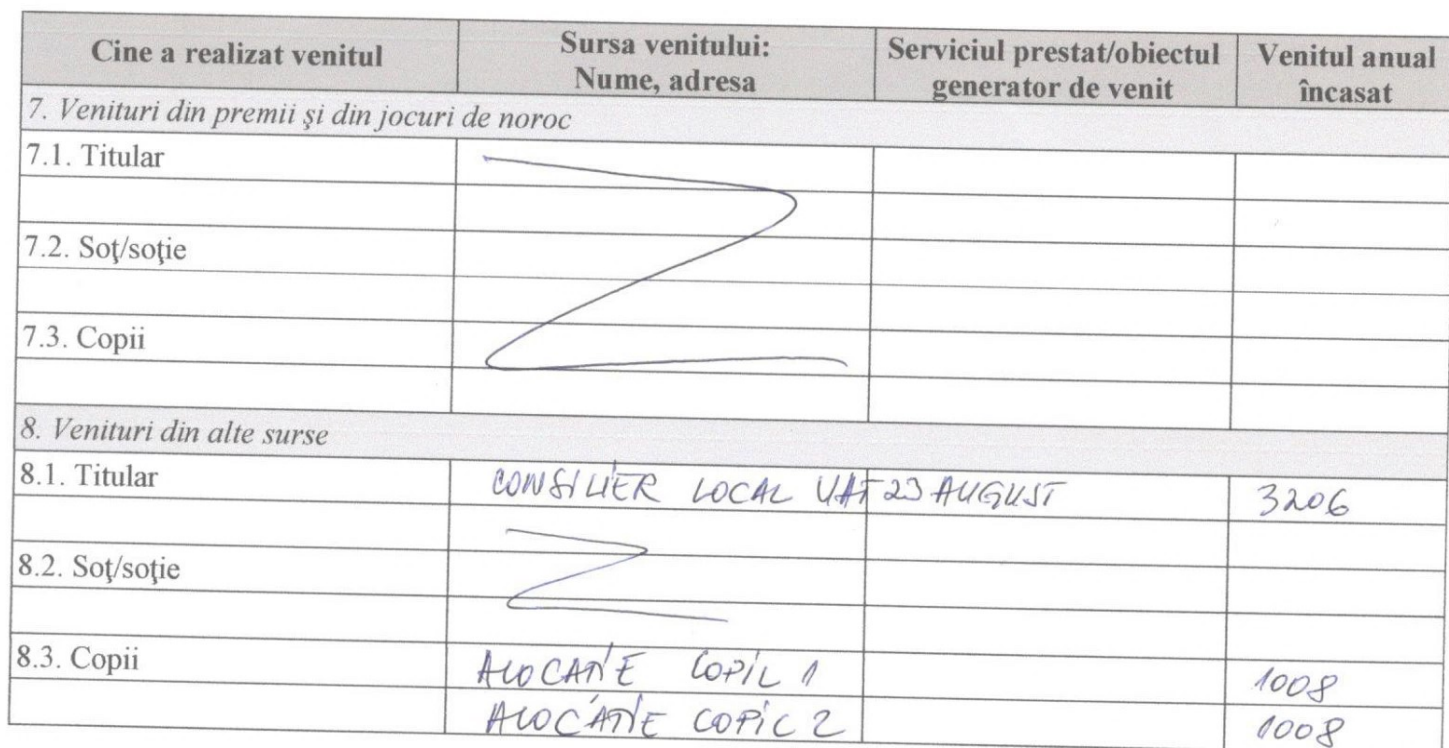 Cine a realizat venitul Sursa venitului: Nume, adresa Serviciul prestat/obiectul generator de venit Venitul anual încasat
7. Venituri din premii şi din jocuri de noroc
7.1. Titular
7.2. Soţ/soţie
7.3. Copii
8. Venituri din alte surse
8.1. Titular CONSILIER LOCAL UAT 23 AUGUST 3206
8.2. Soţ/soţie
8.3. Copii ALOCATIE COPIL 1 1008
ALOCATIE COPIL 2 1008